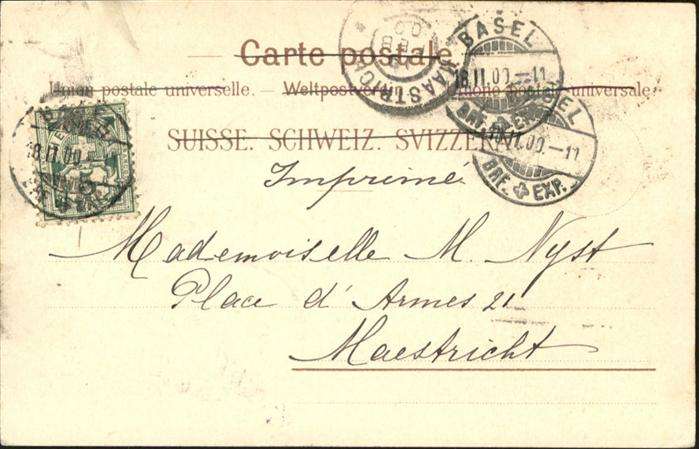 Carte postale
BASEL
18.II.00.-11
BRF. EXP.
MAASTRICHT
Union postale universelle. — Weltpostverein. — Unione postale universale.
BASEL
18.II.00.-11
BRF. EXP.
18.II.00.
5
SUISSE. SCHWEIZ. SVIZZERA.
Imprimé
Mademoiselle M. Nyst
Place d'Armes 21
Maestricht